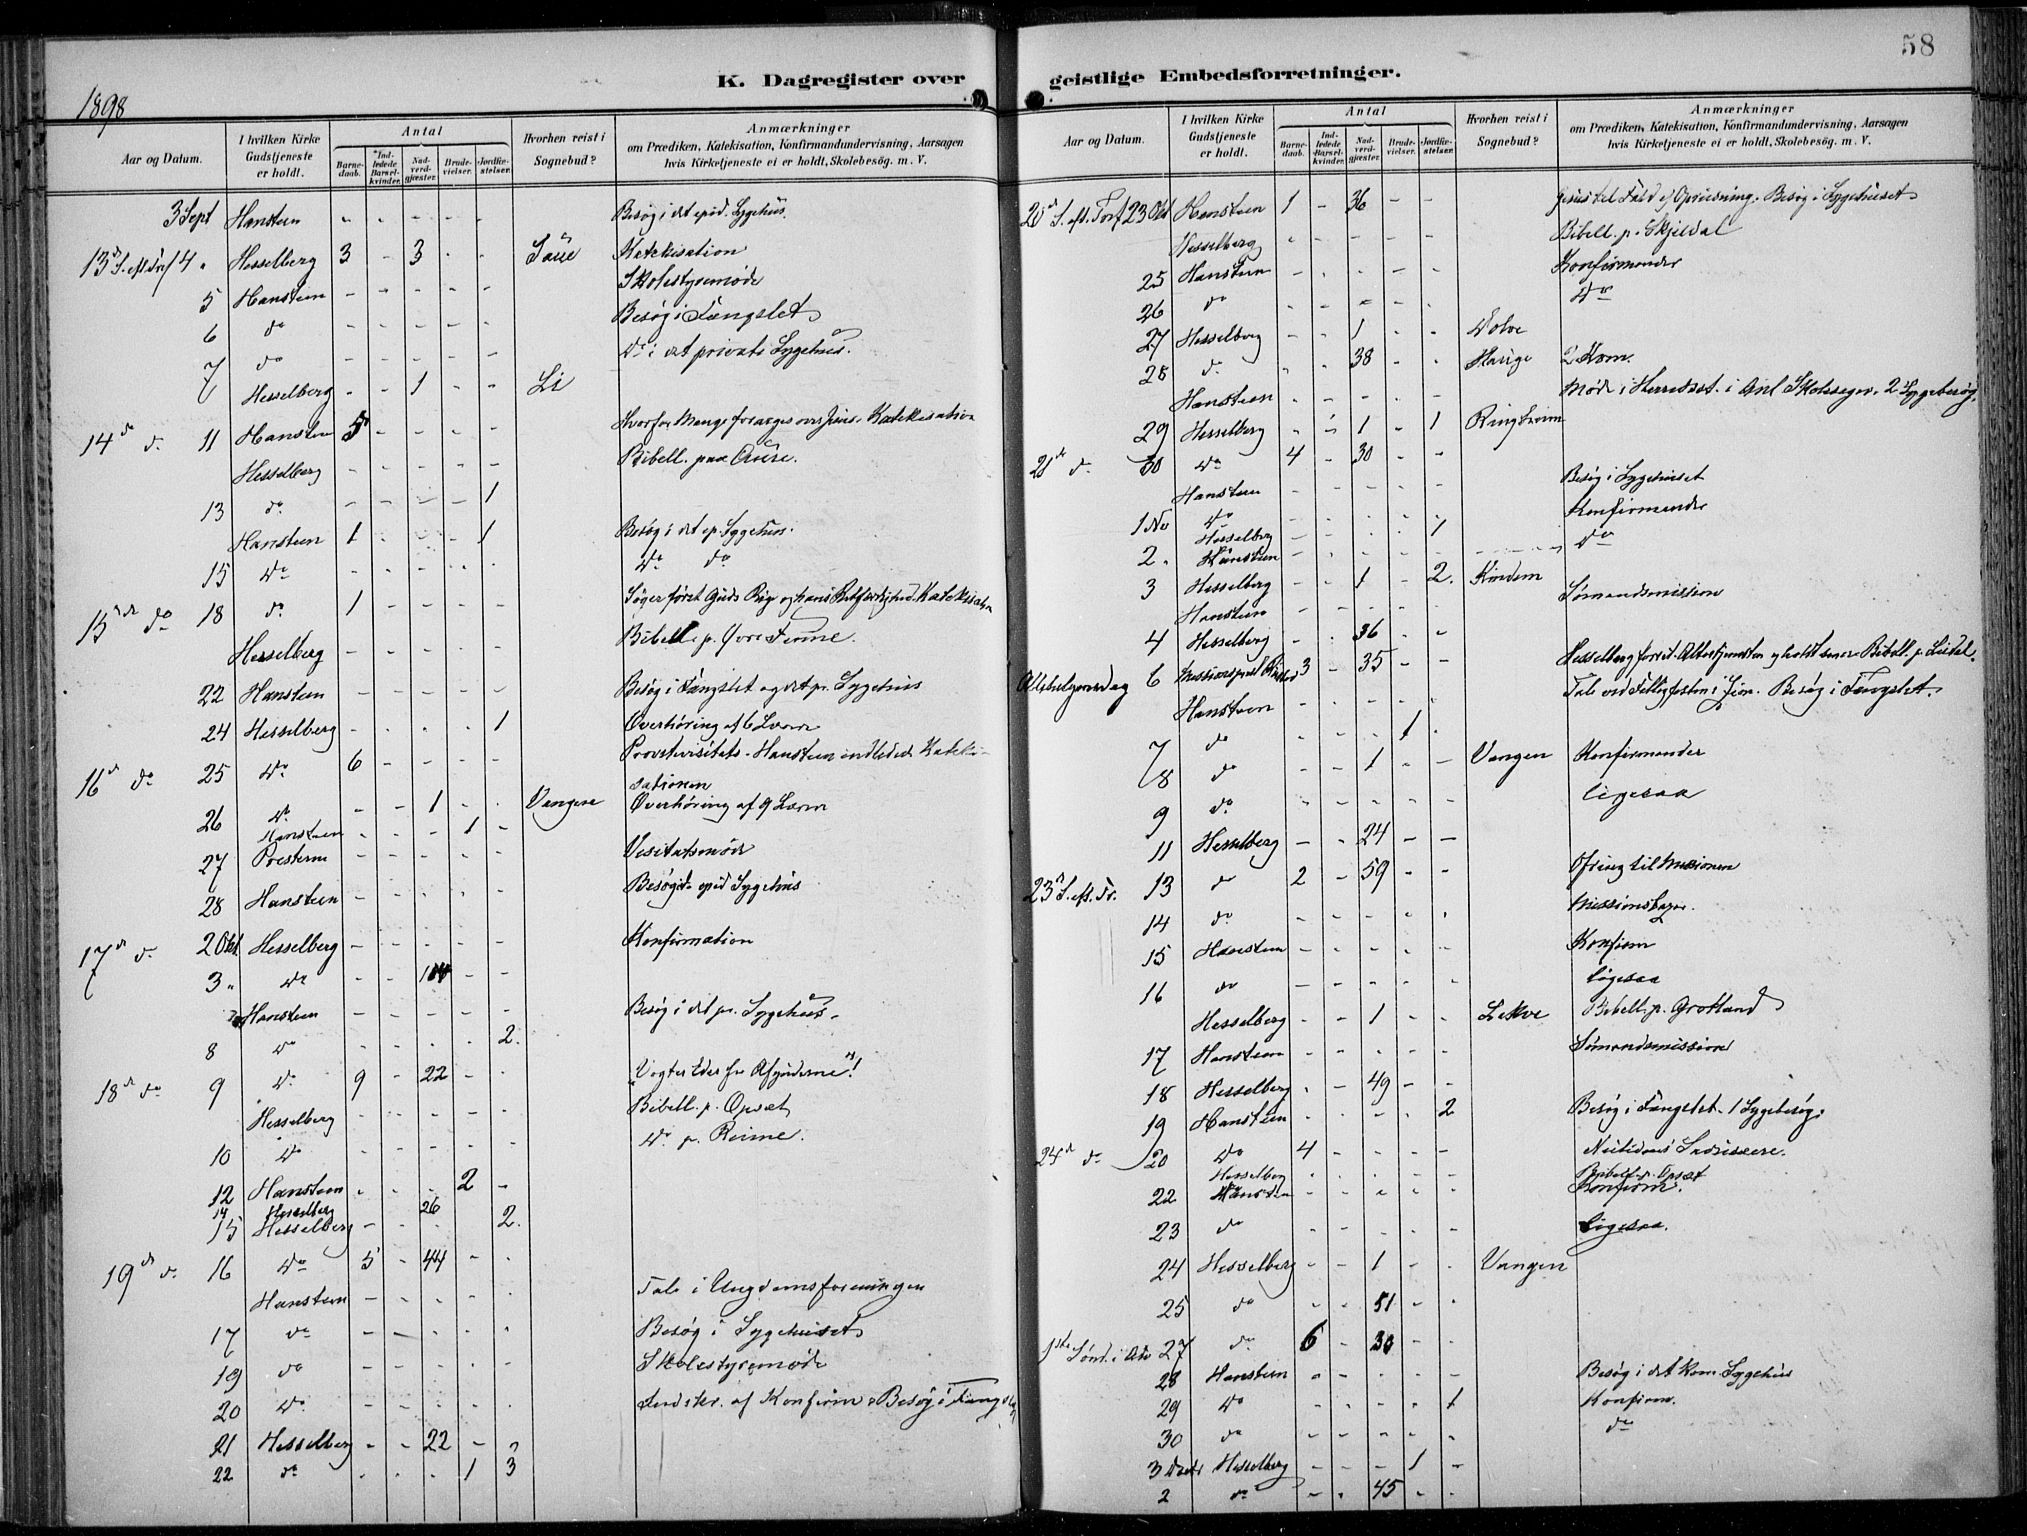 58
K. Dagregister over geistlige Embedsforretninger.
1898
Aar og Datum. I hvilken Kirke Gudstjeneste er holdt. Antal Barnedaab. Indledede Barselkvinder. Nadverdgjæster. Brudevielser. Jordfæstelser. Hvorhen reist i Sognebud? Anmærkninger om Prædiken, Katekisation, Konfirmandundervisning, Aarsagen hvis Kirketjeneste ei er holdt, Skolebesøg. m. V.
3 Sept Hansteen - - - - - Besøg i det epid. Sygehus.
13d S. eft. Tref 4 " Hesselberg 3 - 3 - - Katekisation
5 Hansteen - - - - - Skolestyremøde
6 do - - - - - Besøg i Fængslet
7 do - - - - - Do i det private Sygehus.
Hesselberg - - 1 - - Li
14d d. 11 Hansteen 5 - - - - Hvorfor Mange forarges over Jesus. Katekisation
Hesselberg - - - - - Bibell. paa
13 do - - - - 1
Hansteen 1 - - - 1 Besøg i det ep. Sygehus.
15 Do - - - - - Do do
15de do 18 do 1 - - - - Søger først Guds Rige og hans Retfærdighed. Katekisation
Hesselberg - - - - - Bibell. p.
22 Hansteen - - - - - Besøg i Fængslet og det pr. Sygehus
24 Hesselberg - - - - 1 Overhøring af 6 Lærer
16d do 25 Do 6 - - - - Provstevisitats - Hansteen indledede Kateki-
sationen
26 Do - - 1 - - Vangen Overhøring af 9 Lærer
Hansteen - - - 1 -
27 Presterne - - - - - Visitatsmøde
28 Hansteen - - - - - Besøg i epid Sygehus
17d d. 2 Okt. Hesselberg - - - - - Konfirmation
3 " Do - - - -
Hansteen - - - - - Besøg i det pr. Sygehus.
8 Do - - - - 2.
18d do 9 Do 9 - 22 - - "Vogter Eder for Afguderne"!
Hesselberg - - - - - Bibell. p. Opsæt
10 Do - - - - - Do p. Reime.
12 Hansteen - - - 2 -
14 Hesselberg 26
15 Hesselberg - - - - 2.
19d d. 16 Do 5 - 44 - -
Hansteen - - - - - Tale i Ungdomsforeningen
17 do - - - - - Besøg i Sygehuset
19 do - - - - - Skolestyremøde
20 Do - - - - - Indskr. af Konfirm. Besøg i Fængslet
21 Hesselberg - - 22 - -
22 do - - - 1 3
Aar og Datum. I hvilken Kirke Gudstjeneste er holdt. Antal Barnedaab. Indledede Barselkvinder. Nadverdgjæster. Brudevielser. Jordfæstelser. Hvorhen reist i Sognebud? Anmærkninger om Prædiken, Katekisation, Konfirmandundervisning, Aarsagen hvis Kirketjeneste ei er holdt, Skolebesøg. m. V.
20d S. eft. Tref 23 Okt Hansteen 1 - 36 - - Jesus til Fald og Opreisning. Besøg i Sygehuset
Hesselberg - - - - - Bibell. p. Skjeldal
25 Hansteen - - - - - Konfirmander
26 do - - - - - Do
27 Hesselberg - - 1 - -
28 d. - - 38 - - 2 Kom.
Hansteen - - - - - Møde i Herredsst. i Anl Skolesager. 2 Sygebesøg.
29 Hesselberg - - 1 - 1 Ringheim
21d d. 30 Do 4 - 30 - -
Hansteen - - - - - Besøg i Sygehuset
1 Nov Do - - - - - Konfirmander
Hesselberg - - - - 1
2. Hansteen - - - - - Do
3 Hesselberg - - 1 - 2. Kindem
Hansteen - - - - - Sømandsmission
4 Hesselberg - - 36 - -
Allehelgensdag 6 3 - 35 - - Hesselberg forret. Altertjenesten og holdt senere Bibell. p.
Hansteen - - - - - Tale ved Besøg i Fængslet.
7 do - - - 1 -
8 do - - 1 - - Vangen Konfirmander
9 do - - - - - ligesaa
11 Hesselberg - - 24 - -
23d S. eft. Tr. 13 do 2 - 59 - - Ofring til Missionen
14 do - - - - - Missionsbazar.
15 Hansteen - - - - - Konfirm
16 do - - - - - ligesaa
Hesselberg - - 1 - - Lekve Bibell. p. Grotland
17 Hansteen - - - - - Sømandsmission
18 Hesselberg - - 49 - -
19 Hansteen - - - - 2 Besøg i Fængslet. 1 Sygebesøg.
24d do 20 Do 4 - - - - Nutidens
Hesselberg - - - - - Bibell. p. Opsæt
22 Hansteen - - - - - Konfirm.
23 do - - - - - ligesaa.
24 Hesselberg - - 1 - - Vangen
25 do - - 51 - -
1ste Sønd. i Adv 27 do 6 - 30 - -
28 Hansteen - - - - - Besøg i det kom. Sygehus
29 Do - - - - 1 Konfirm.
30 do - - - - - do
Hesselberg - - - 1 -
2 do - - 45 - -